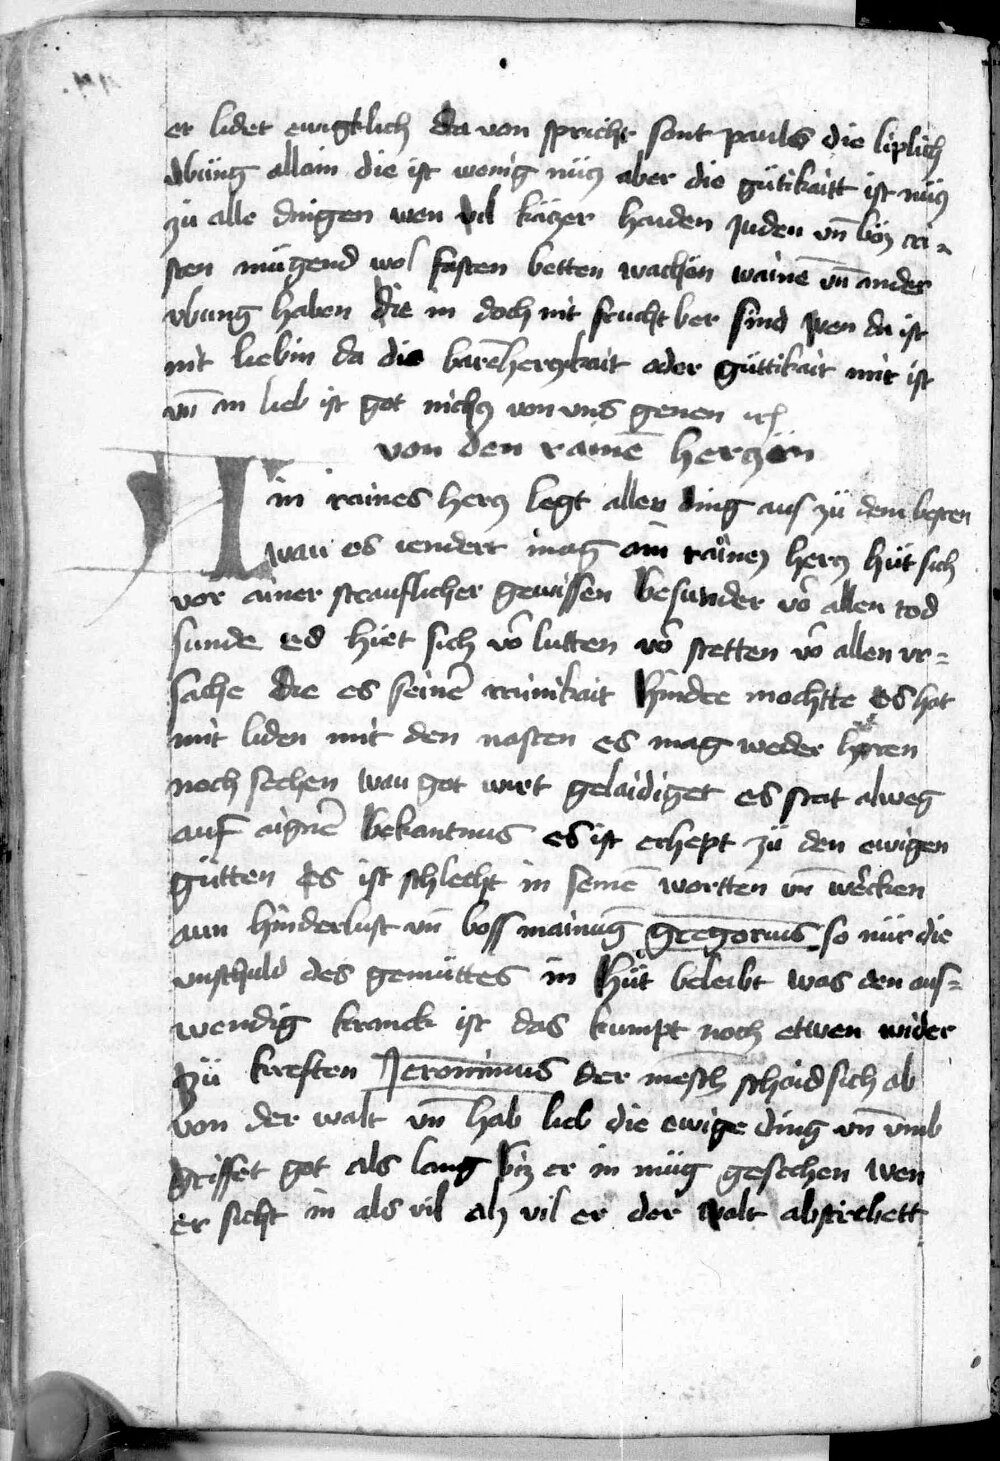 er lidet ewigklich da von spricht sant pauls die liplich
vbung allain die ist wenig nücz aber die gütikaitt ist nücz
zü alle dingen wen vil käczer haiden Juden vn̄ böz cri-
sten mügend wol fasten betten wachen wainē vn̄ ander
vbung haben die in doch nit frucht ber sind wen da ist
nit liebin da die barm̄herczikait oder güttikait nit ist
vn̄ an lieb ist got nichcz von vns genem
von den rainē herczen
Ain raines hercz legt allen ding aus zü dem besten
wan es iendert mag ain rainez hercz hüt sich
vor ainer strauflicher gewissen besunder vō allen tod
sunde es hüet sich vō lutten vō stetten vō allen vr=
sache die es seinē rainikait hinder mochtte es hat
mit liden mit den nasten es mag weder horen
noch sechen wan got wirt gelaidiget es stat alweg
auf aignē bekantnus es ist erhept zü den ewigen
gütten es ist schlecht in seinē wortten vn̄ wercken
aun hinderlust vn̄ boss mainūg gregorius so nür die
vnschuld des gemüttes in hüt beleibt was den aus=
wendig kranck ist das kumpt noch etwen wider
zü kreften Jeronimus der mesch schaid sich ab
von der walt vn̄ hab lieb die ewige ding vn̄ vmb
griffet got als lang biz er in müg gesechen wen
er sicht in als vil alz vil er der walt abstirbett